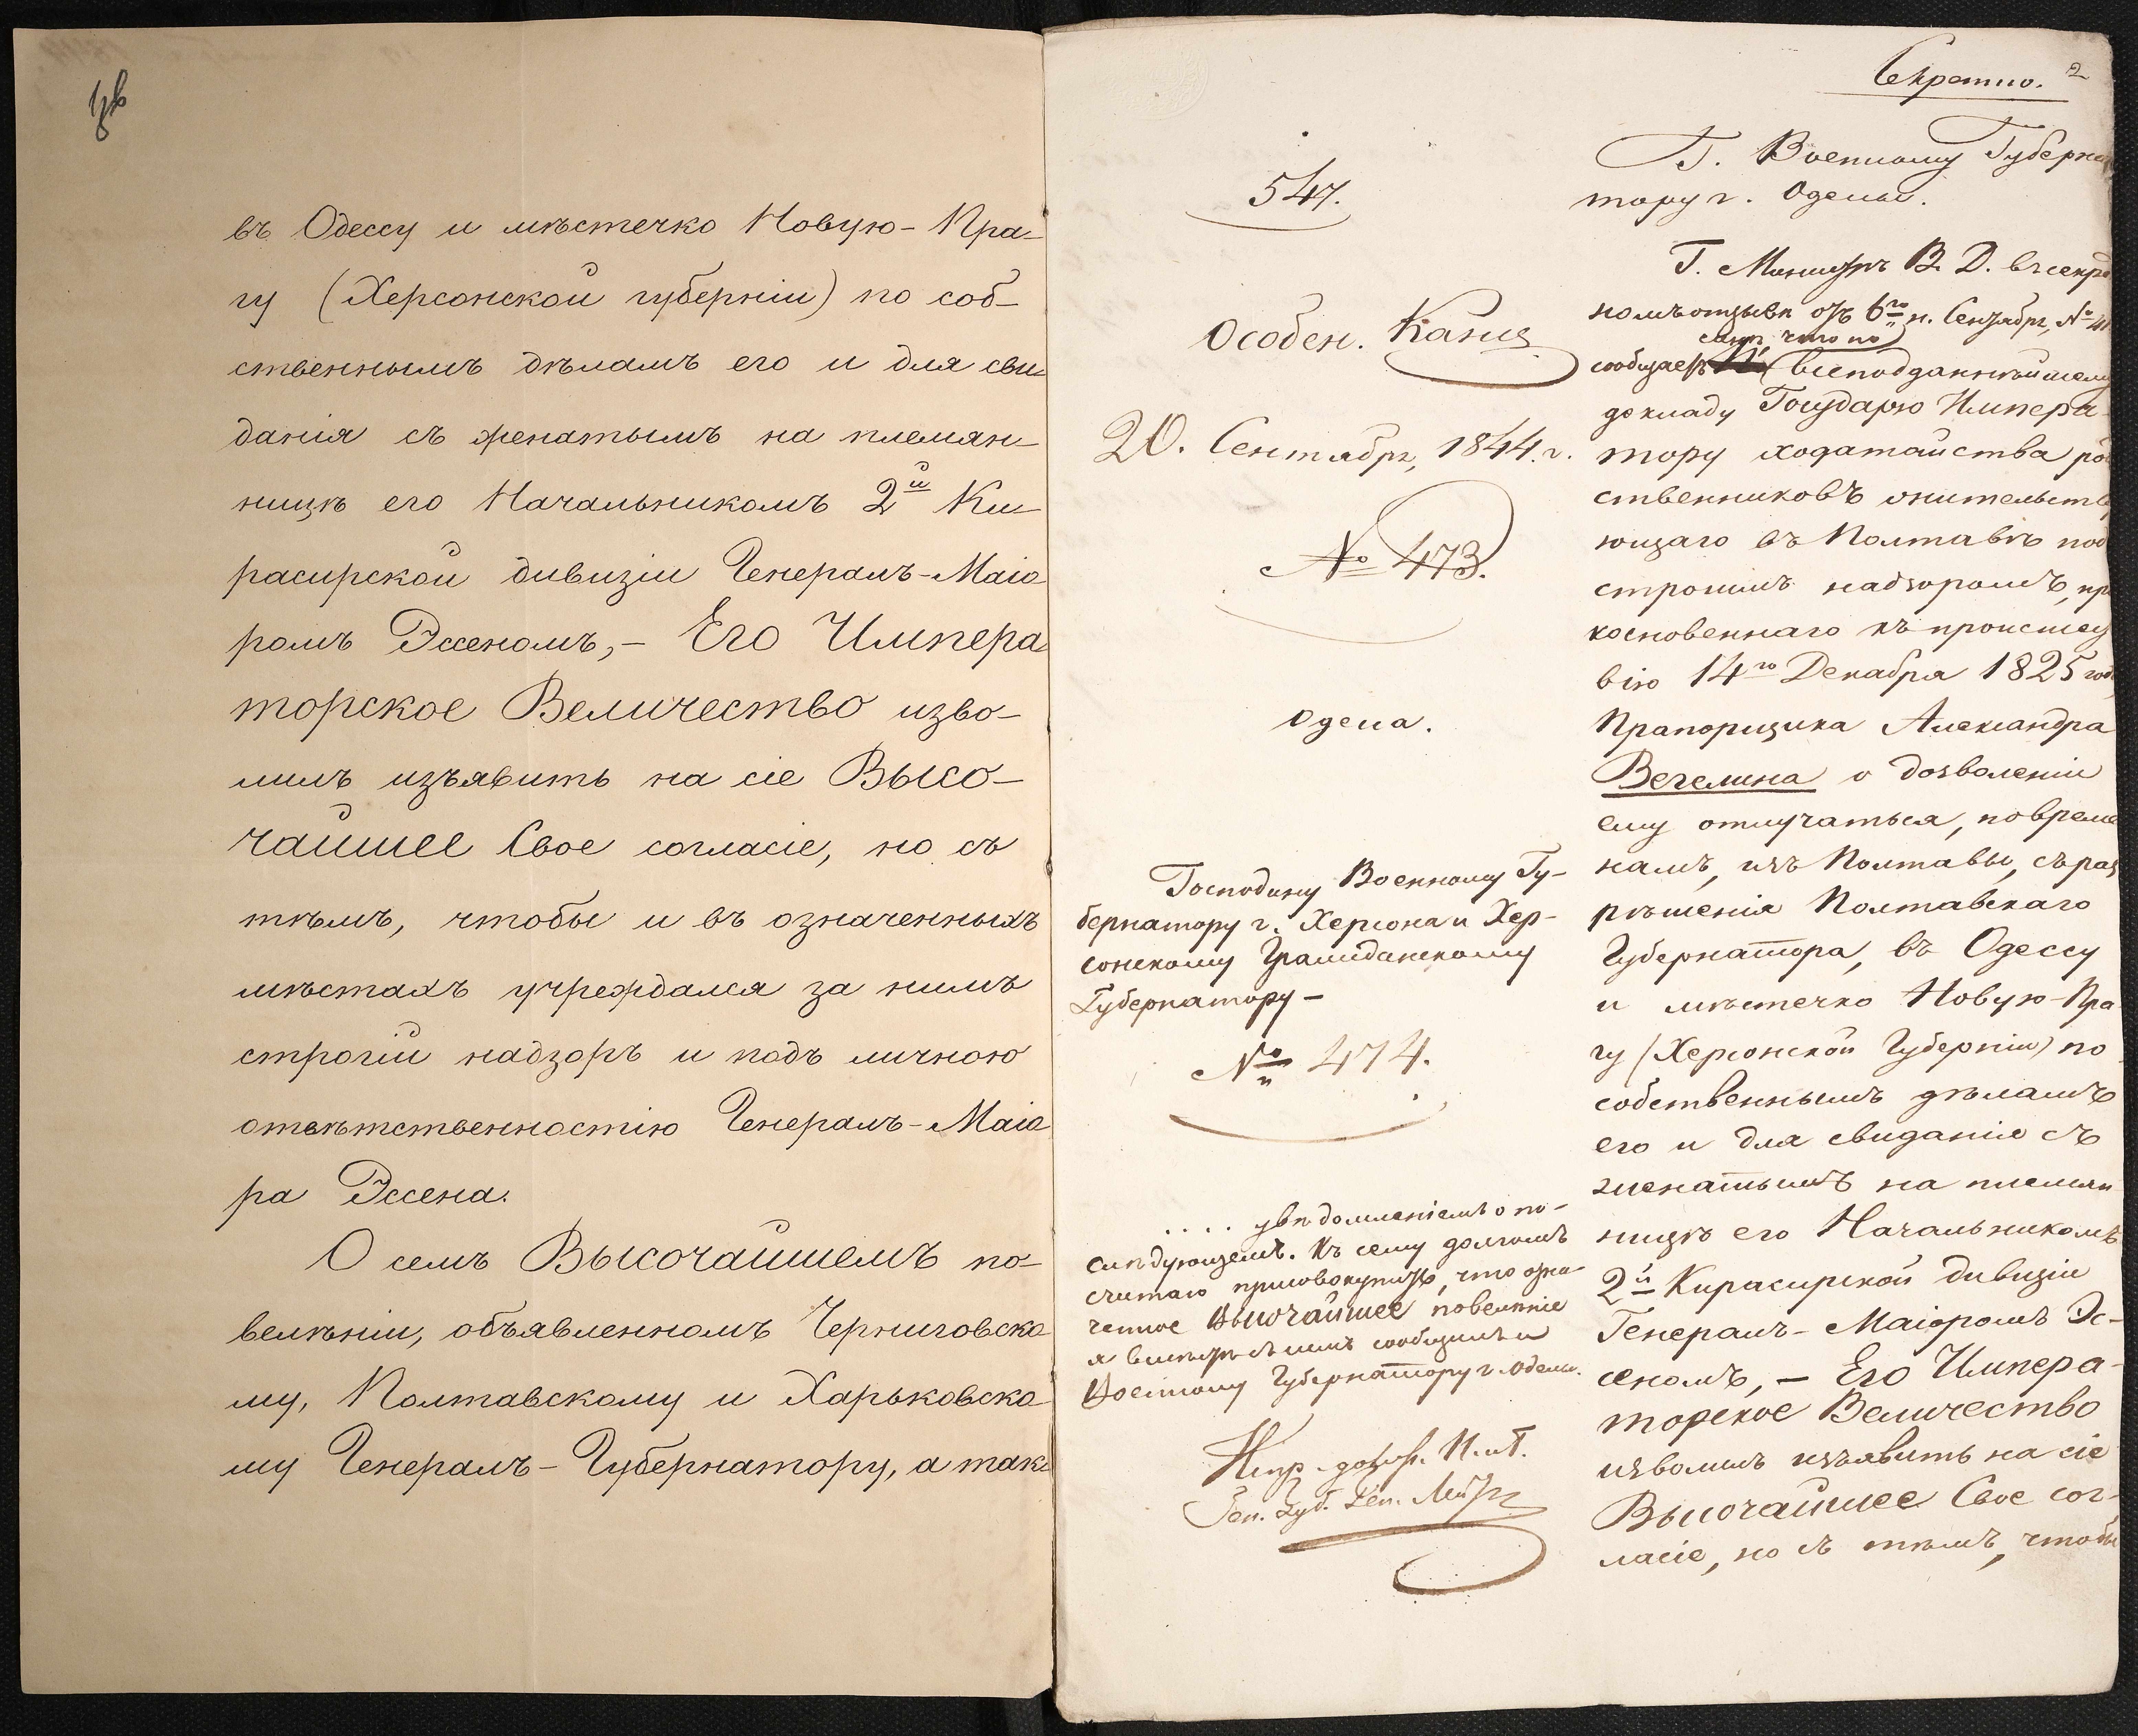 въ Одессу и мѣстечко Новую-Пра-
гу (Херсонской губерніи) по соб-
ственнымъ дѣламъ его и для сви-
данія съ женатымъ на племян-
ницѣ его Начальникомъ 2й Ки-
расирской дивизіи Генералъ-Маіо
ромъ Эссеномъ,- Его Импера-
торское Величество изво-
лилъ изъявить на сіе Высо-
чайшее Свое согласіе, но съ
тѣмъ, чтобы и въ означенныхъ
мѣстахъ учреждался за нимъ
строгій надзоръ и подъ личною
отвѣтственностію Генералъ-Маіо
ра Эссена.
О семъ Высочайшемъ по-
велѣніи, объявленномъ Черниговско
му, Полтавскому и Харьковско
му Генералъ-Губернатору, а так
547.
Особен. Канц
20. Сентября, 1844. г.
№ 473.
Одесса.
Господину Военному Гу-
бернатору г. Херсона и Хер-
сонскому Гражданскому
Губернатору-
№ 474.
.... увѣдомленіемъ о по-
слѣдующемъ. Къ сему долгомъ
считаю присовокупить, что озна-
ченное Высочайшее повелѣніе
я вмѣстѣ съ симъ сообщилъ и
Военному Губернатору г. Одессы.
Ген. Губ. Ген. Лейт
Секретно. 2
Г. Военному Губерна
тору г. Одессы.
Г. Министръ В. Д. въ секрет
номъ отзывѣ отъ 6го н. Сентября, №
что по
сообщаетъ всеподданнѣйшему
докладу Государю Импера-
тору ходатайства род
ственниковъ жительств
ющаго въ Полтавѣ под
строгимъ надзоромъ, при
косновеннаго къ происшед
вію 14го Декабря 1825 года
Прапорщика Александра
Вегелина о дозволеніи
ему отлучаться, по време
намъ, изъ Полтавы, съ раз
рѣшенія Полтавскаго
Губернатора, въ Одессу
и мѣстечко Новую-Пра
гу (Херсонской Губерніи) по
собственнымъ дѣламъ
его и для свиданія съ
женатымъ на племян
ницѣ его Начальникомъ
2й Кирасирской дивизіи
Генералъ-Маіоромъ Эс-
сеномъ,- Его Импера-
торское Величество
изволилъ изъявить на сіе
Высочайшее Свое сог-
ласіе, но съ тѣмъ, чтобы